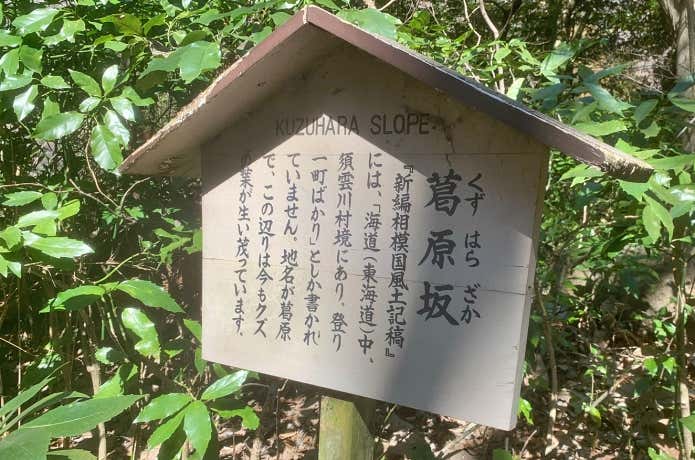 KUZUHARA SLOPE
くず はら ざか
葛原坂
『新編相模国風土記稿』
には、「海道(東海道)中、
須雲川村境にあり，登り
一町ばかり」としか書かれ
ていません。地名が葛原
で、この辺りは今もクズ
の葉が生い茂っています．